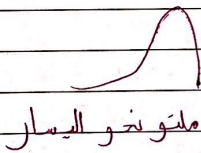 ملتو نحو اليسار